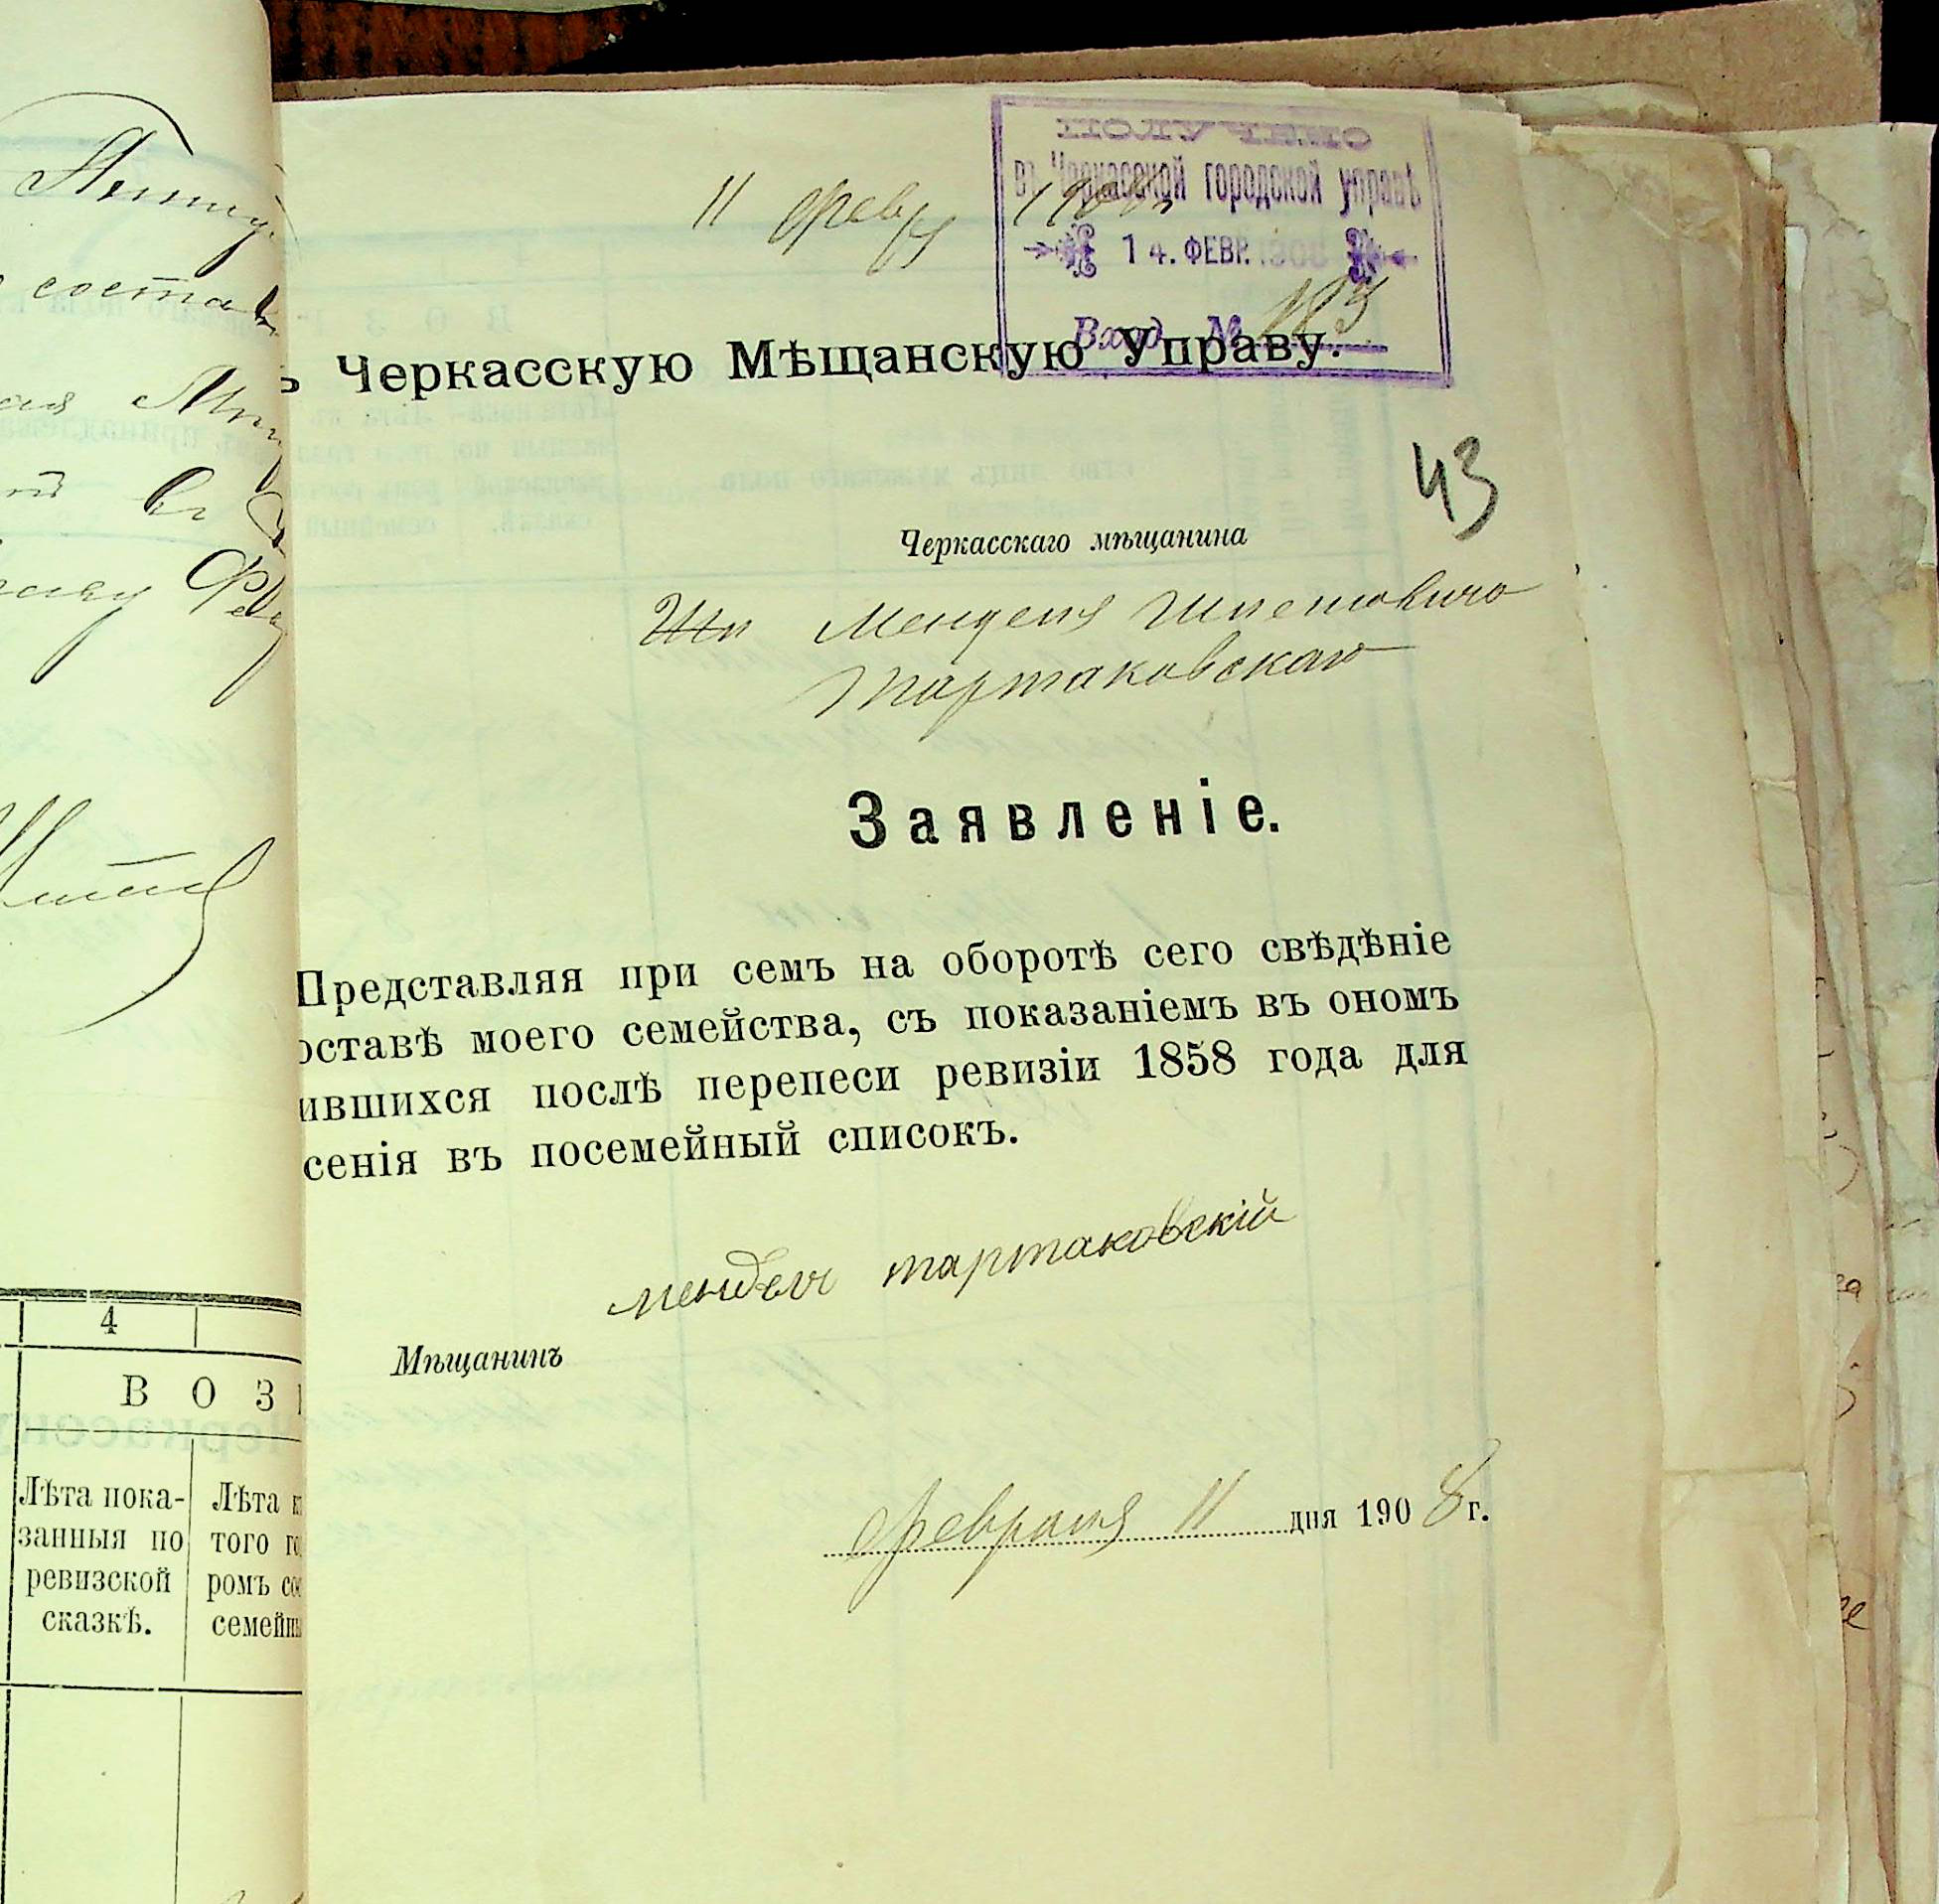 11 февр 1908 г.
ПОЛУЧЕНО
въ Черкасской городской управѣ
14. ФЕВР. 1908
Вход. №
ъ Черкасскую Мѣщанскую Управу.
43
Черкасскаго мѣщанина
Шп Менделя Шпентовича
Тартаковскаго
Заявленіе.
Представляя при семъ на оборотѣ сего свѣдѣніе
оставѣ моего семейства, съ показаніемъ въ ономъ
ившихся послѣ перепеси ревизіи 1858 года для
сенія въ посемейный списокъ.
мендель тартаковскій
Мѣщанинъ
февраля 11 дня 1908 г.
состав
въ
4
ВОЗ
Лѣта пока-
занныя по
ревизской
сказкѣ.
Лѣта к
того го
ромъ сос
семейны